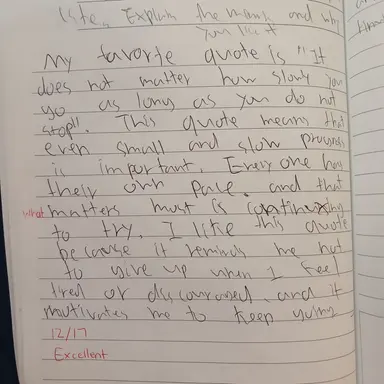 liste, Explain the meaning and why
you like it
My favorite quote is "It
does not matter how slowly you
go as long as you do not
stop". This quote means that
even small and slow progress
is important. Every one has
their own pace. and that
what matters most is continuing
to try. I like this quote
because it reminds me not
to give up when I feel
tired or discouraged. and it
moutivates me to keep going
12/17
Excellent